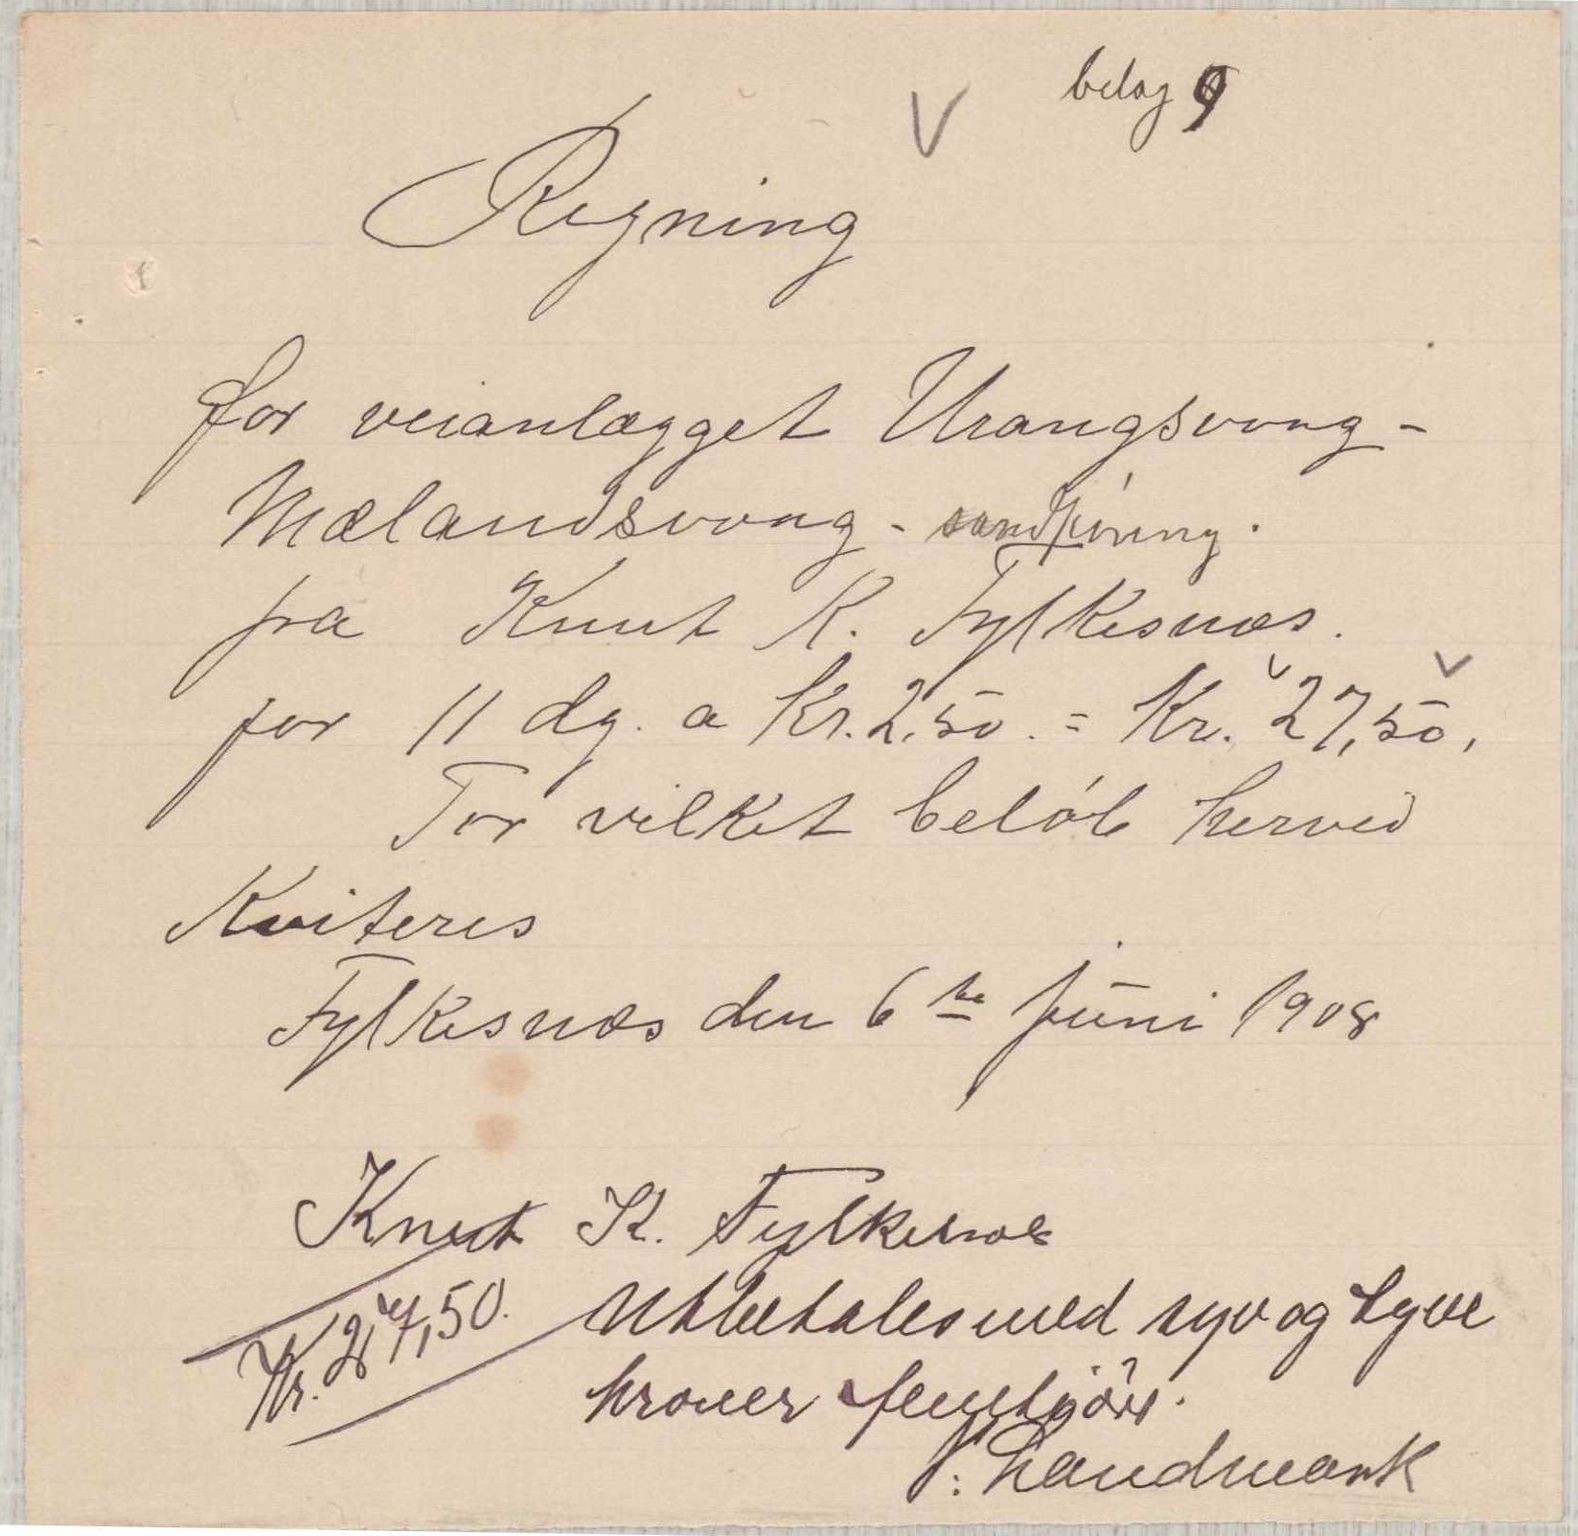 belag 9
V
Regning
for veianlægget Urangsvaag -
Mælandsvaag - sandkjöring.
fra Knut K. Fylkesnæs.
for 11 dg. a Kr. 2,50. = Kr. 27,50,
For vilket belöb herved
Kviteres
Fylkesnæs den 6te juni 1908
Knut K. Fylkesnæs
Kr. 27,50. Utbetales med syv og tyve
kroner femtiöre.
: Landmark